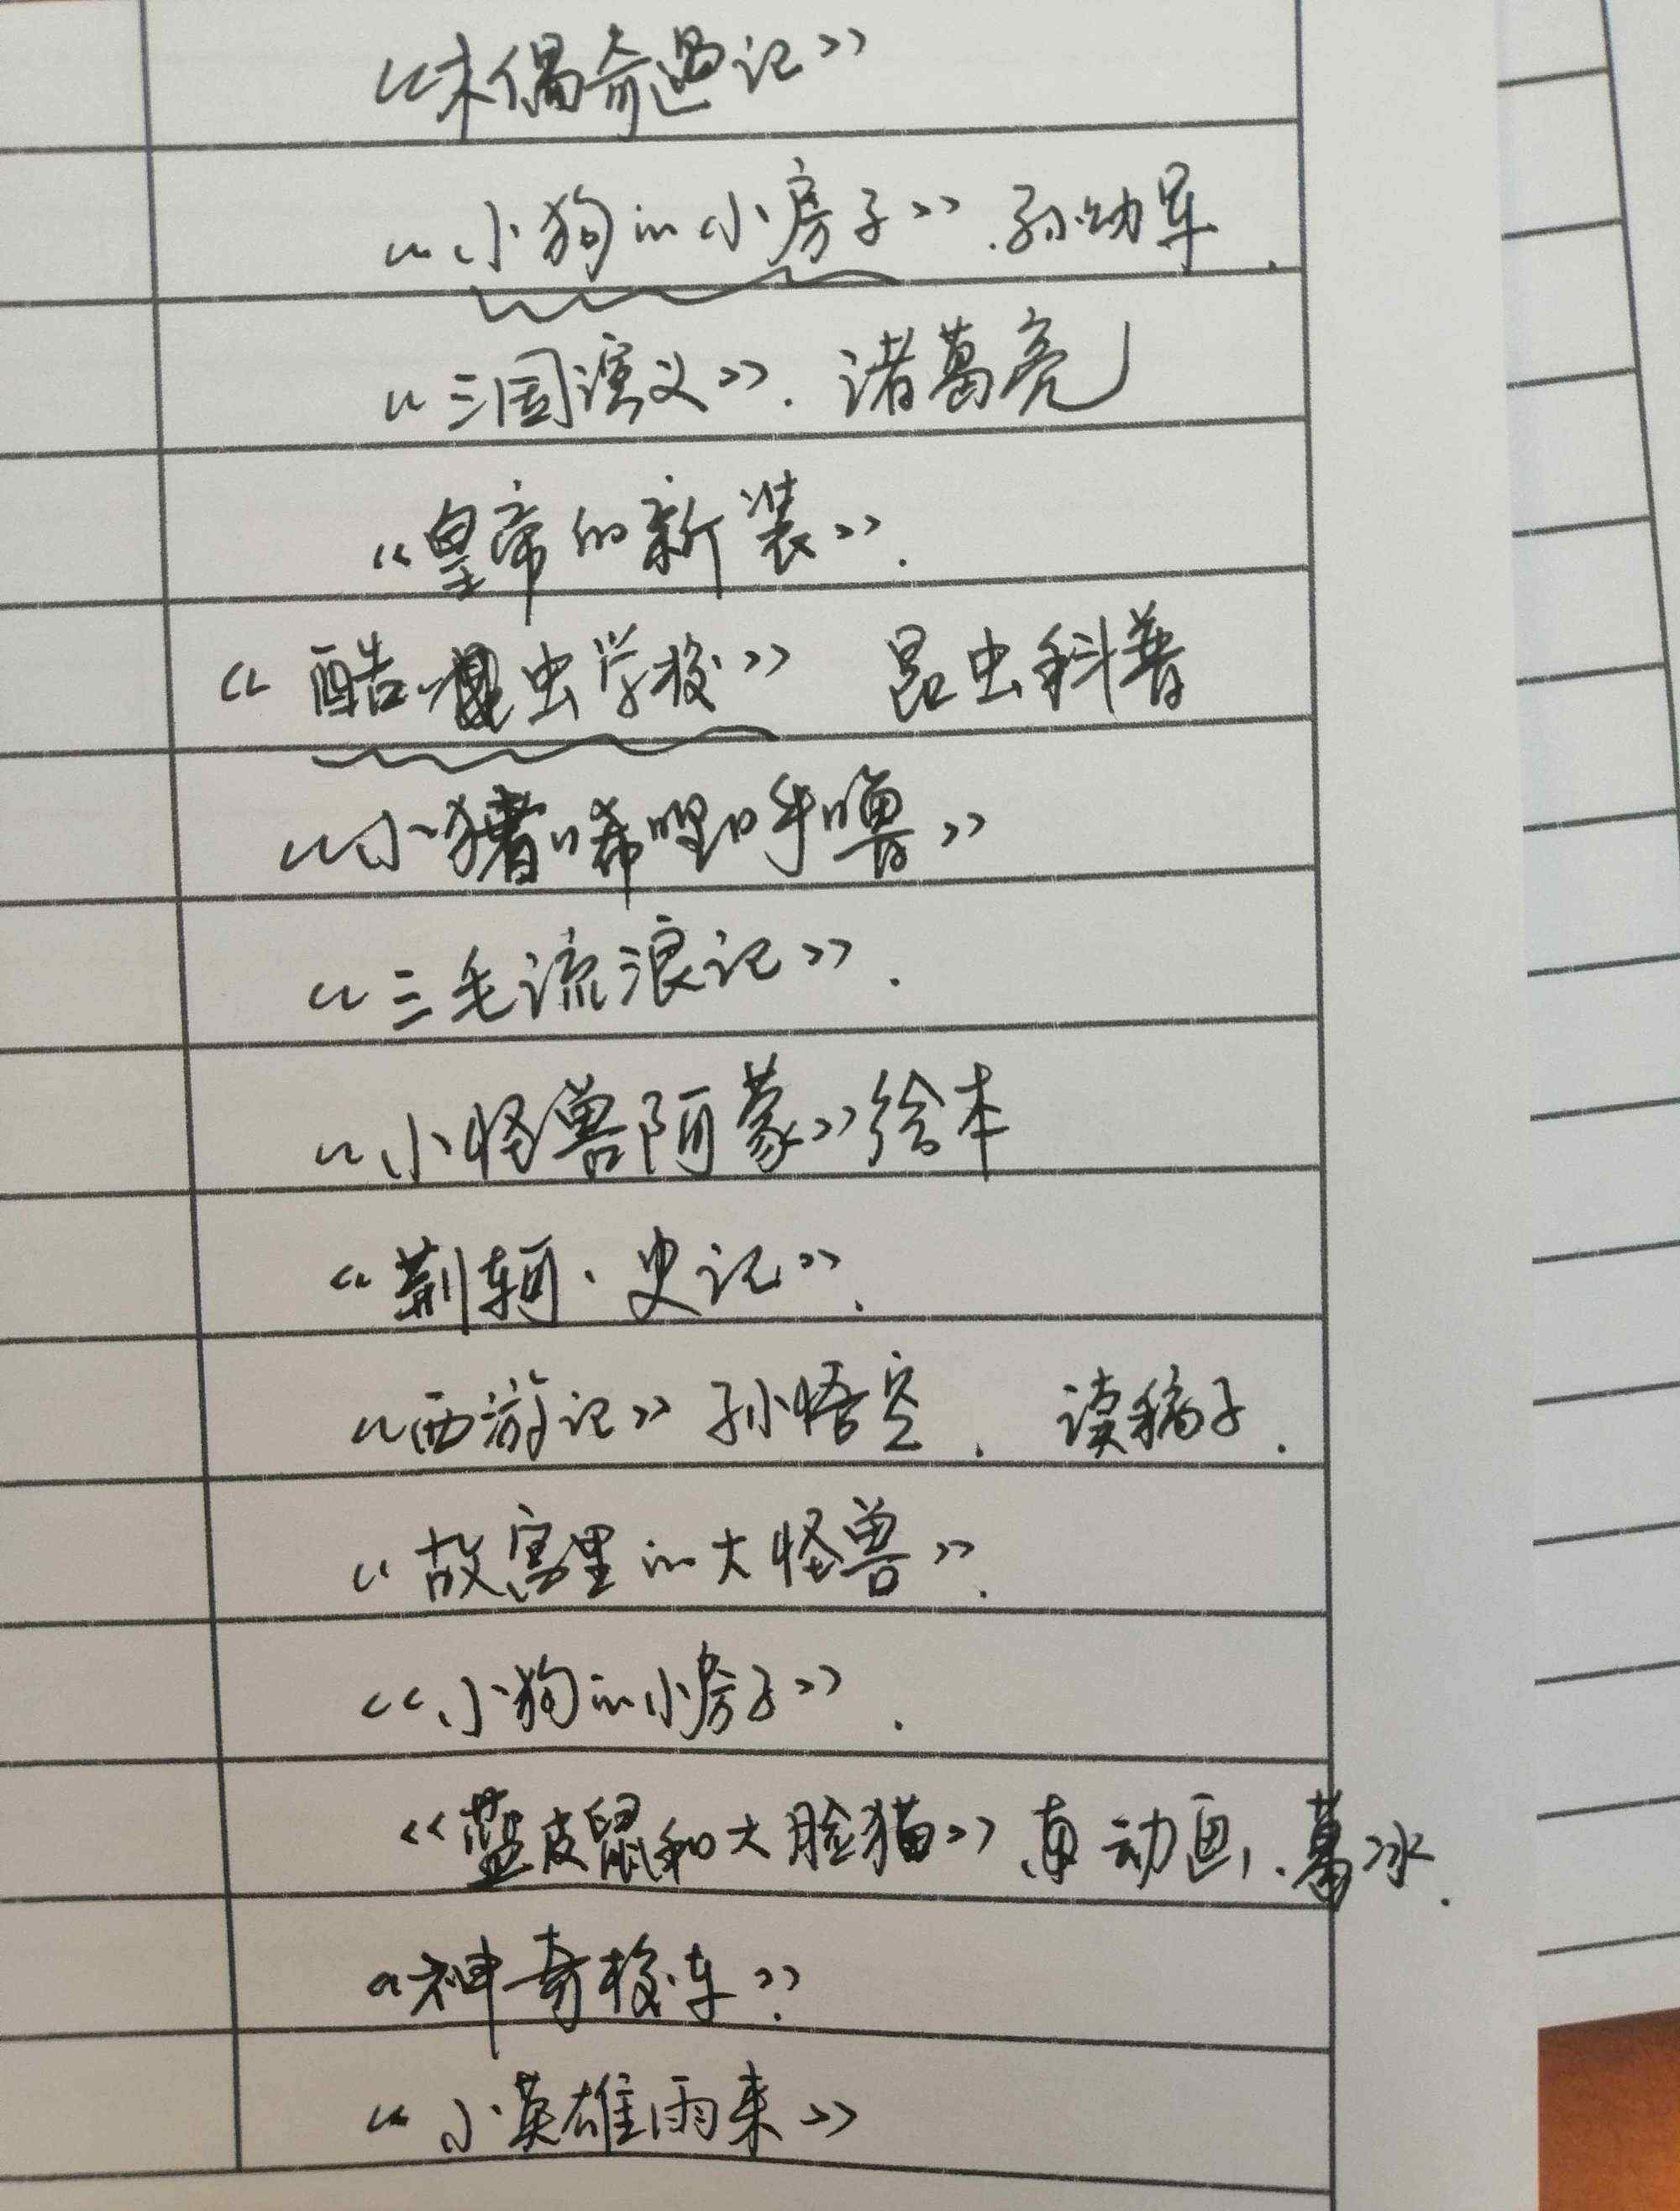 《木偶奇遇记》
《小狗的小房子》.孙幼军.
《三国演义》.诸葛亮
《皇帝的新装》.
《酷虫学校》 昆虫科普
《小猪唏哩呼噜》
《三毛流浪记》.
《小怪兽阿蒙》绘本
《荆轲·史记》.
《西游记》孙悟空. 读稿子.
《故宫里的大怪兽》.
《小狗的小房子》.
《蓝皮鼠和大脸猫》有动画,葛冰.
《神奇校车》.
《小英雄雨来》